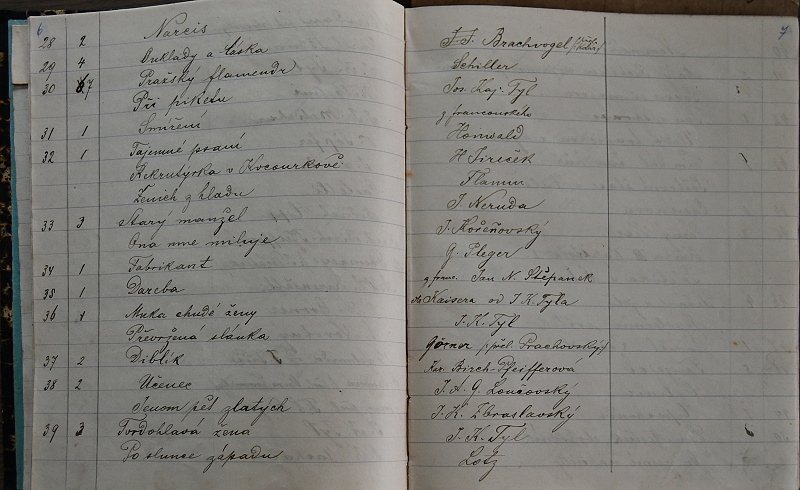 6
28 2 Narcis
29 4 Ouklady a láska
30 7 Pražský flamendr
Při piketu
31 1 Smíření
32 1 Tajemné psaní
Rekrutýrka v Kocourkově
Ženich z hladu
33 3 Starý manžel
Ona mne miluje
34 1 Fabrikant
35 1 Dareba
36 1 Muka chudé ženy
Převržená slánka
37 2 Diblík
38 2 Učenec
Jenom pět zlatých
39 3 Tvrdohlavá žena
Po slunce západu
7
J. J. Brachvogel
Schiller
Jos. Kaj. Tyl
z francouzského
Honwald
H. Jireček
Flamm
J. Neruda
J. Košeňovský
G. Pleger
z franc. Jan N. Štěpánek
Kaisera od J. K. Tyla
J. K. Tyl
Görner přel. Prachovský
Kar. Birch-Pfeifferová
J. K. Zbraslavský
J. K. Tyl
Lotz